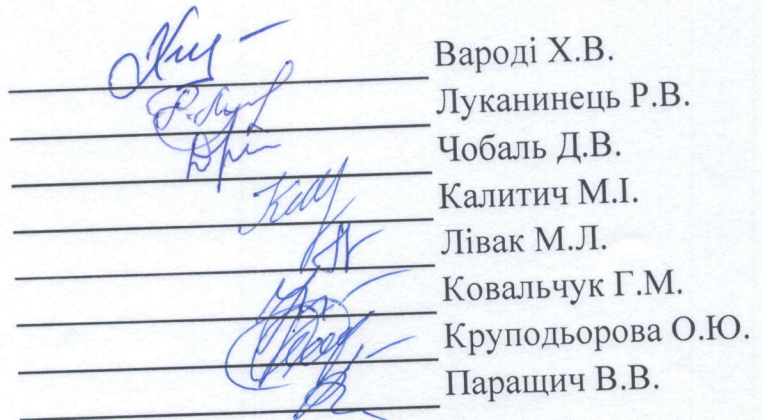 Вароді Х.В.
Луканинець Р.В.
Чобаль Д.В.
Калитич М.І.
Лівак М.Л.
Ковальчук Г.М.
Круподьорова О.Ю.
Паращич В.В.